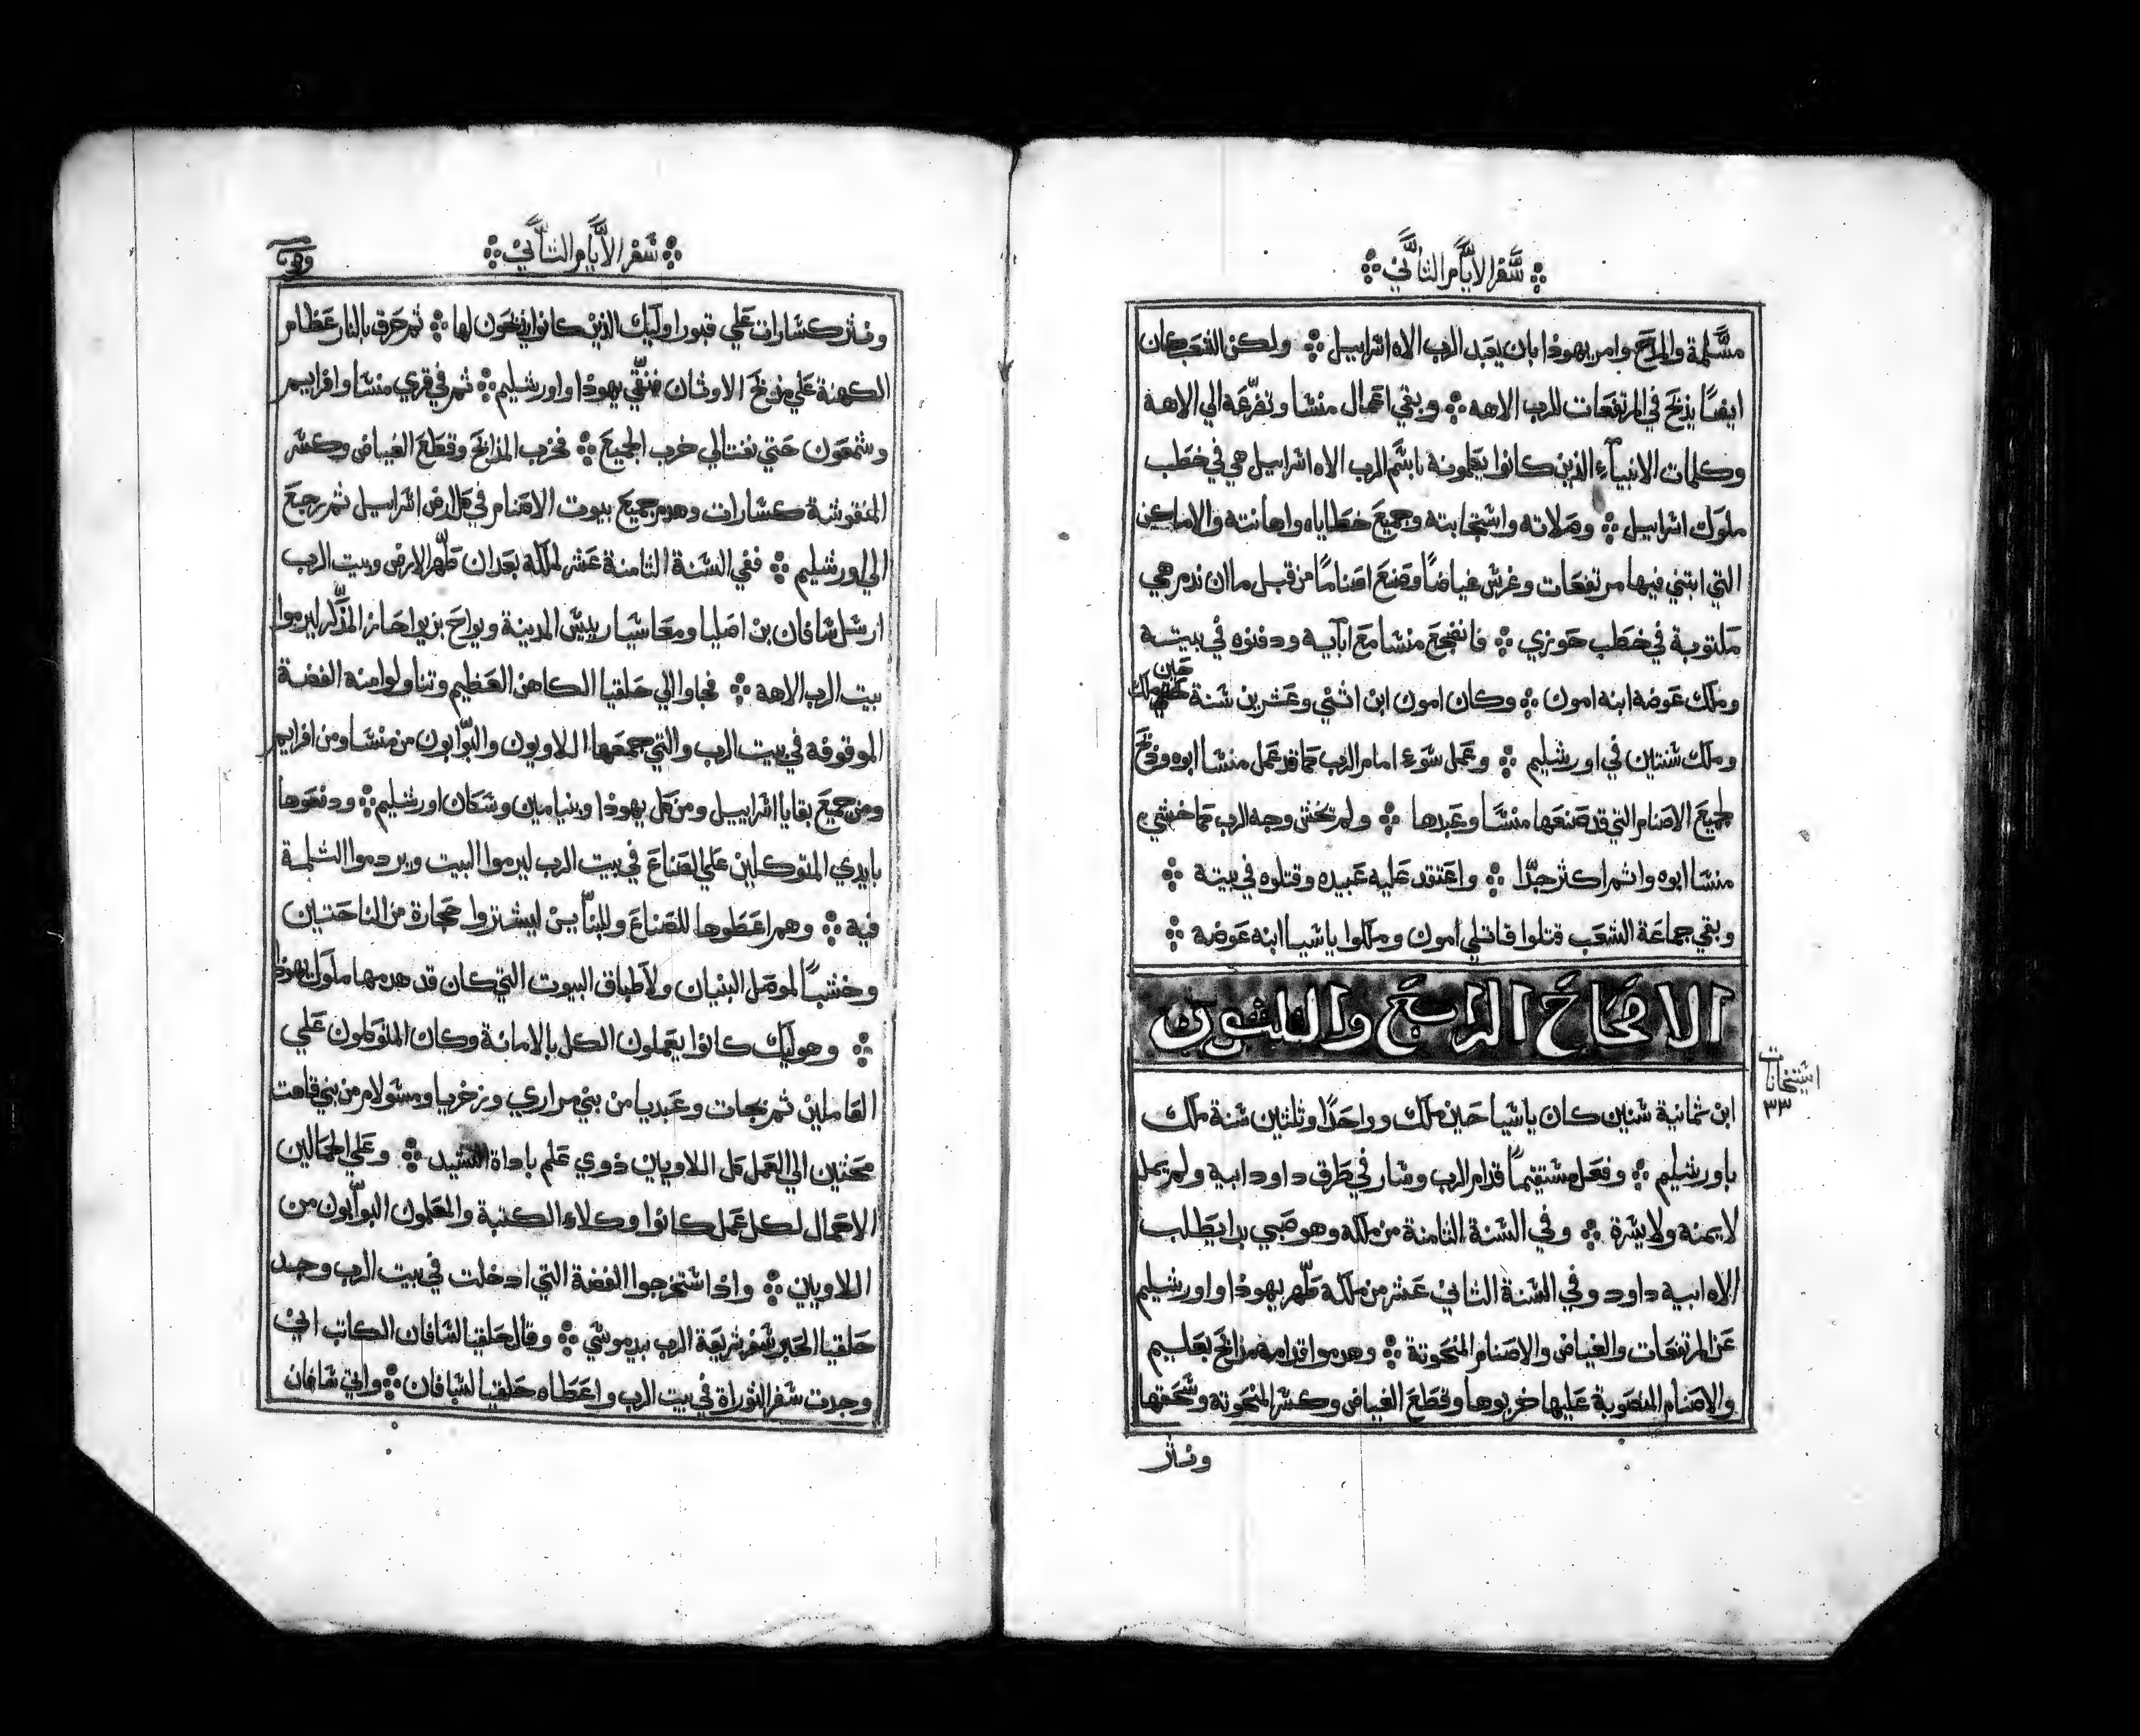 سفر الأيام الثاني
مسلمة والمدح وامر يهوذا بان يعبد الرب الاه اسراييل ولكن الشعب كان
ايضًا يذبح في المرتفعات للرب الاهه وبقي اعمال منشا وتضرعه الي الاهه
وكلمات الانبيآء الذين كانوا يكلمونه باسم الرب الاه اسراييل هي في خطب
ملوك اسراييل وصلاته واستجابته وجميع خطاياه واهانته والاماكن
التي ابتني فيها مرتفعات وغرس غياضًا وصنع اصنامًا من قبل ما ان ندم هي
مكتوبة في خطب حوزي فانضجع منشا مع ابآيه ودفنوه في بيته
وملك عوضه ابنه امون وكان امون ابن اثني وعشرين سنة حين ملك
وملك سنتين في اورشليم وعمل سوء امام الرب كما قد عمل منشا ابوه وذبح
لجميع الاصنام التي قد صنعها منشا وعبدها ولم تخش وجه الرب كما خشي
منشا ابوه واثم اكثر جدًا واعتقد عليه عبيده وقتلوه في بيته
وبقي جماعة الشعب قتلوا قاتلي امون وملكوا ياشيا ابنه عوضه
الاصحاح الرابع والثلثون
استيخانات
٣٣
ابن ثمانية سنين كان ياشيا حين ملك وواحدًا وثلثين سنة ملك
باورشليم وفعل مستقيمًا قدام الرب وسار في طرق داود ابيه ولم يمل
لا يمنه ولا يسرة وفي السنة الثامنة من ملكه وهو صبي بدا يطلب
الاه ابيه داود وفي السنة الثاني عشر من ملكه طهر يهوذا واورشليم
عن المرتفعات والغياض والاصنام المنحوتة وهدموا قدامه مذابح بعليم
والاصنام المنصوبة عليها خربوها وقطع الغياض وكسر المنحوته وسحقها
ونثر
سفر الأيام الثاني
ونثر كسارات علي قبور اوليك الذين كانوا يذبحون لها ثم حرق بالنار عظام
الكهنة علي مذبح الاوثان فنقي يهوذا واورشليم ثم في قري منشا وافراييم
وشمعون حتي نفتالي خرب الجميع فخرب المذابح وقطع الغياض وكسر
المنقوشة كسارات وهدم جميع بيوت الاصنام في كل ارض اسراييل ثم رجع
الي اورشليم ففي السنة الثامنة عشر لملكه بعد ان طهر الارض وبيت الرب
ارسل شافان بن اصليا ومعاشيا رييس المدينة ويواح بن يواحاز المذكر ليرموا
بيت الرب الاهه فجاوا الي حلقيا الكاهن العظيم وتناولوا منه الفضة
الموقوفه في بيت الرب والتي جمعها اللاويون والبوابون من منشا ومن افراييم
ومن جميع بقايا اسراييل ومن كل يهوذا وبنيامين وسكان اورشليم ودفعوها
بايدي المتوكلين علي الصناع في بيت الرب ليرموا البيت ويردموا الثلمة
فيه وهم اعطوها للصناع وللبنآيين ليشتروا حجارة من الناحتين
وخشبًا لموصل البنيان ولاطباق البيوت التي كان قد هدمها ملوك يهوذا
وهوليك كانوا يعملون الكل بالامانة وكان المتوكلون علي
العاملين ثم نجات وعبديا من بني مراري وزخريا ومسولام من بني قاهت
محثين الي العمل كل اللاويين ذوي علم باداة التسبيد وعلي الحمالين
الاحمال لكل عمل كانوا وكلاء الكتبة والمعلمون البوابون من
اللاويين واذ استخرجوا الفضة التي ادخلت في بيت الرب وجد
حلقيا الحبر سفر شريعة الرب بيد موسي وقال حلقيا لشافان الكاتب اني
وجدت سفر التوراة في بيت الرب واعطاه حلقيا لشافان واتي شافان